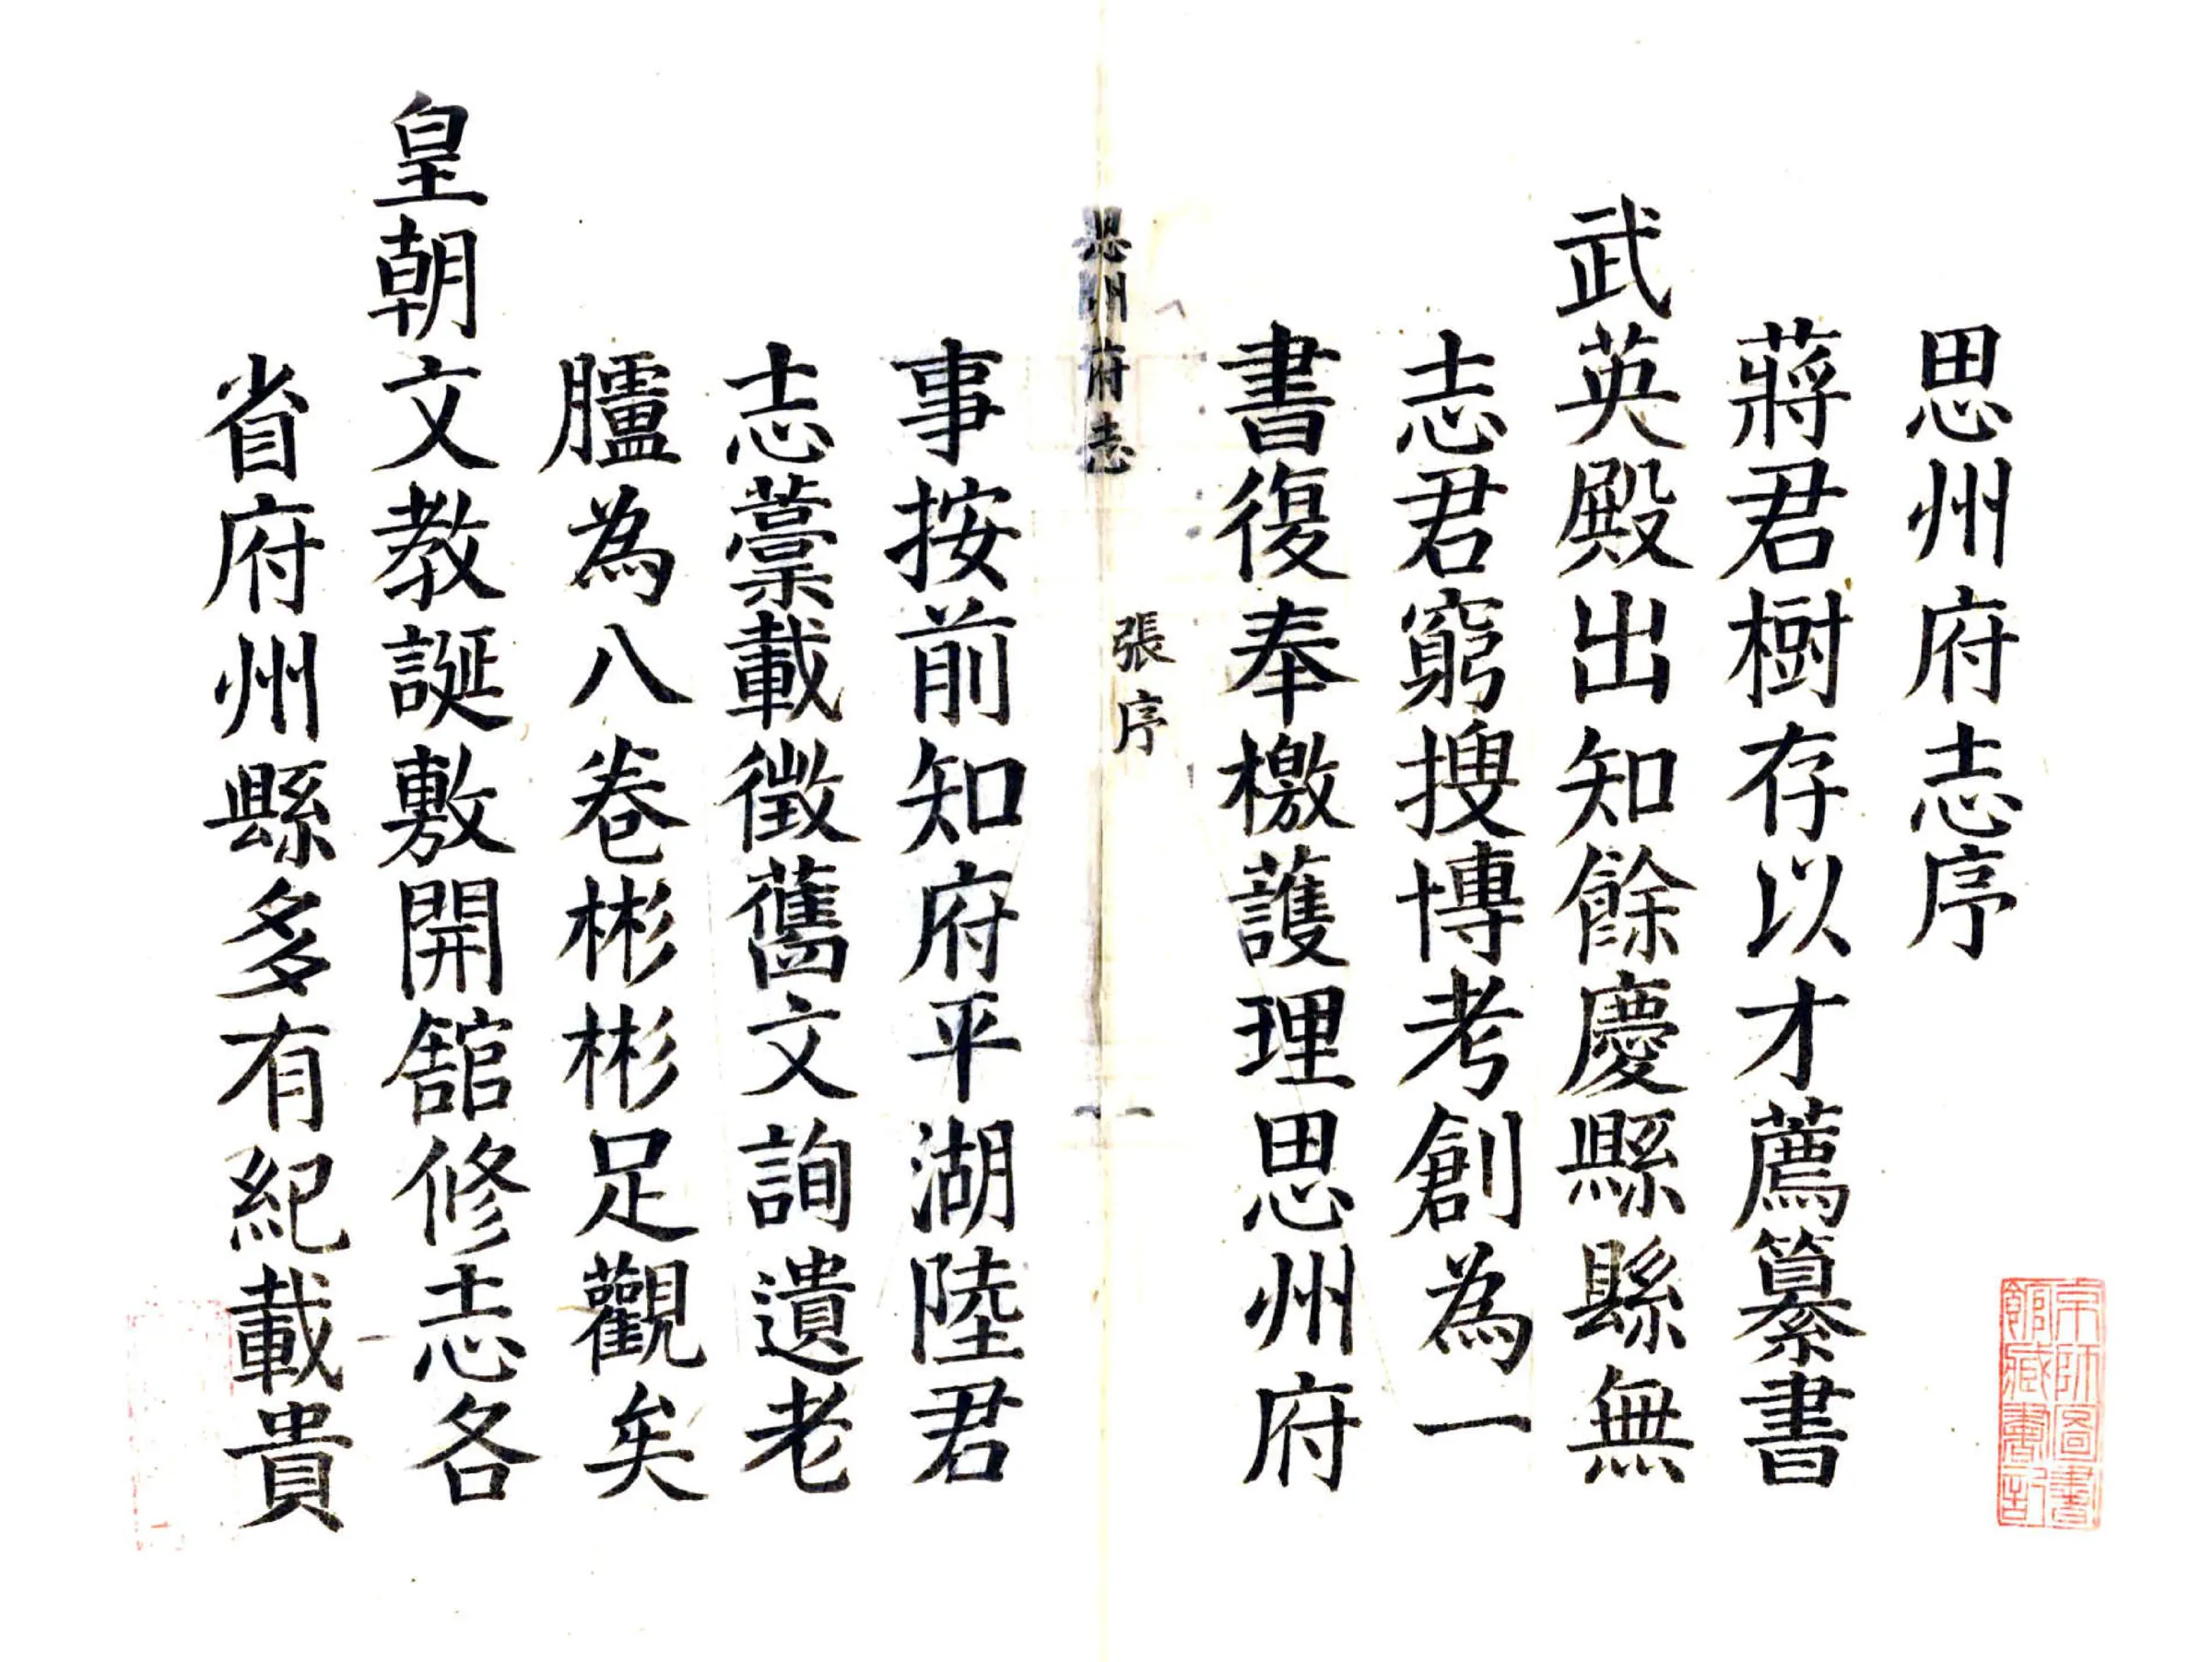 思州府志序
蔣君樹存以才薦纂書
武英殿出知餘慶縣縣無
志君窮搜博考創為一
書復奉檄護理思州府
思州府志
張序
一
事按前知府平湖陸君
志藁載徵舊文詢遺老
臚為八卷彬彬足觀矣
皇朝文教誕敷開舘修志各
省府州縣多有紀載貴
京師圖書
館藏書記